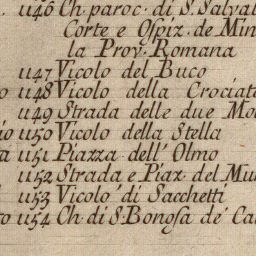 1146 Ch. paroc. di S. Salvat
Corte e Ospiz. de Min
la Prov. Romana
1147 Vicolo del Buco
1148 Vicolo della Crociat
1149 Strada delle due Mo
1150 Vicolo della Stella
1151 Piazza dell' Olmo
1152 Strada e Piaz. del Mu
1153 Vicolo di Sacchetti
1154 Ch. di S. Bonosa de' Ca